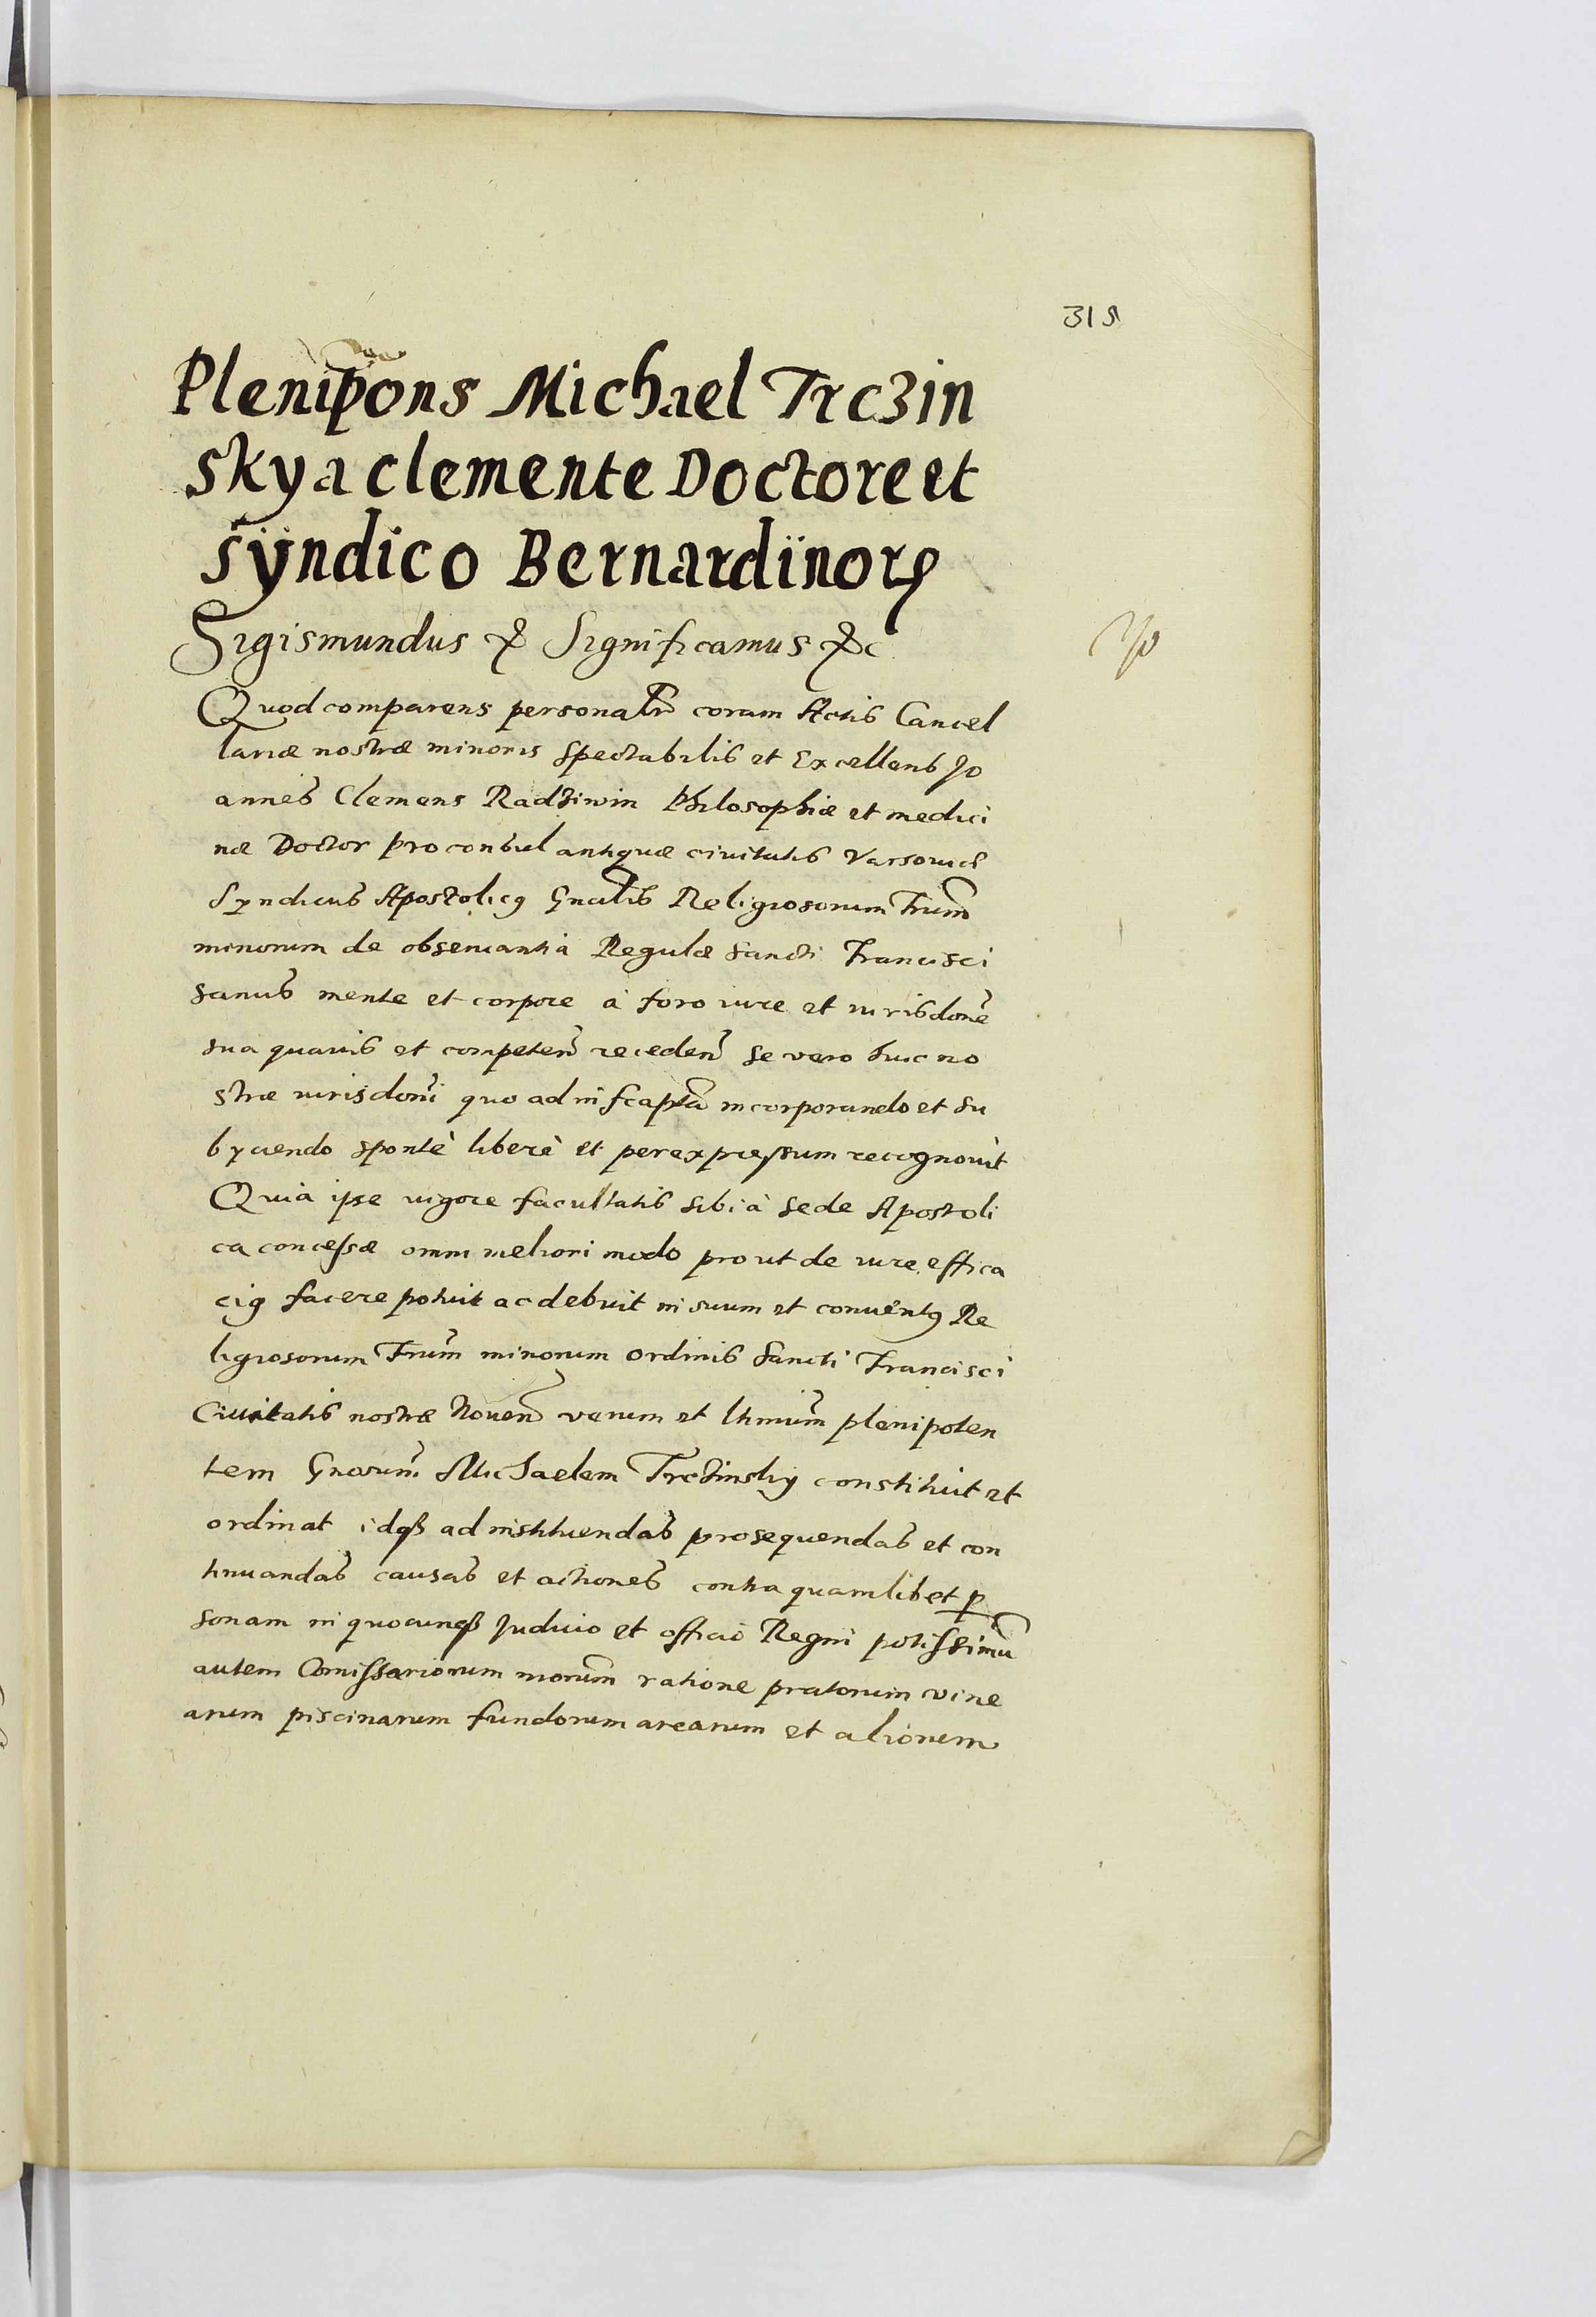 315
Plenipons Michael Trczin
sky a clemente Doctore et
syndico Bernardinorum
Sigismundus & Significamus &c
Quod comparens personalr coram Actis Cancel
lariæ nostræ minoris Spectabilis et Excellens Jo
annes Clemens Radziwin Philosophiæ et medici
næ Doctor proconsul antiquæ civitatis Varsovien
Syndicus Apostolicus Gnalis Religiosorum Frum
minorum de observantia Regulæ sancti Francisci
sanus mente et corpore à foro iure et iurisdone
sua quavis et competen receden se vero huic no
stræ iurisdoni quo ad infrapta incorporando et su
byciendo spontè liberè et per expressum recognovit
Quia ipse vigore facultatis sibi à sede Apostoli
ca concessæ omni meliori modo prout de iure effica
cius facere potuit ac debuit in suum et conventus Re
ligiosorum Frum minorum ordinis Sancti Francisci
Civitatis nostræ verum et ltimum plenipoten
tem Gnosum Michaelem Trczinsky constituit et
ordinat idque ad instituendas prosequendas et con
tinuandas causas et actiones contra quamlibet per
sonam in quocunque Judicio et officio Regni potissimu
autem Comissariorum nrorum ratione pratorum vine
arum piscinarum fundorum arearum et aliorum